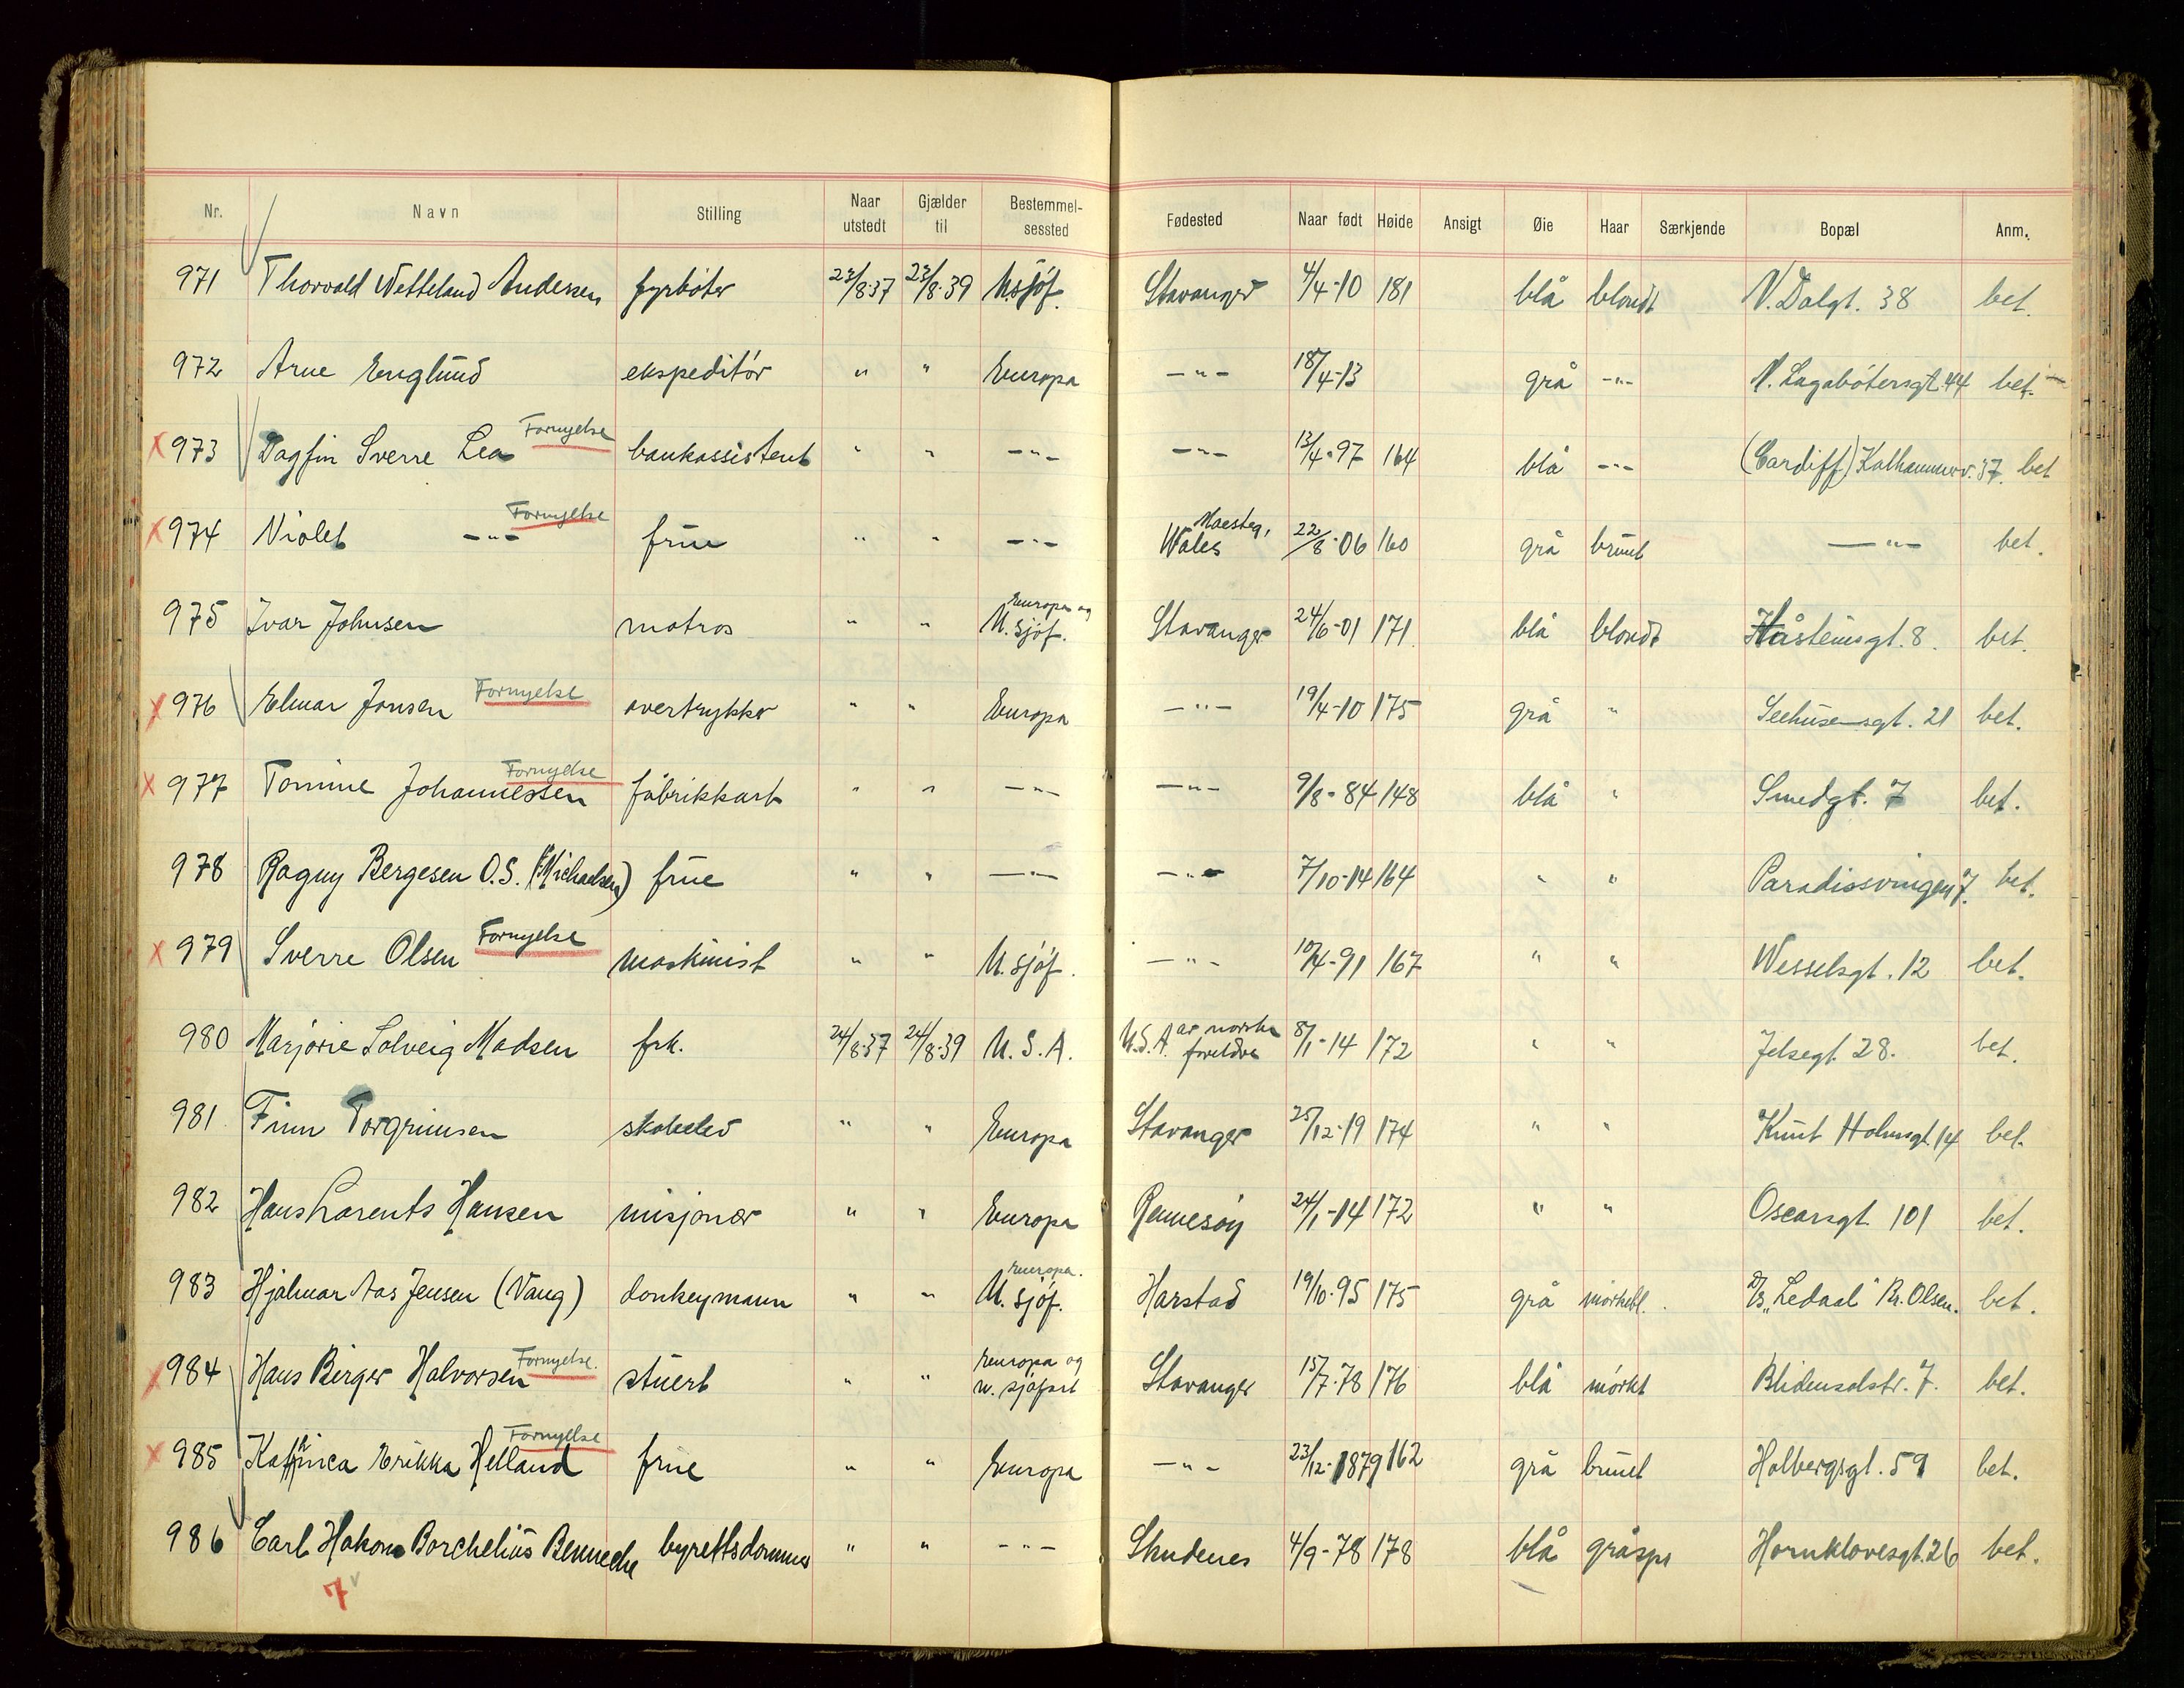 Nr. Navn Stilling Naar utstedt Gjælder til Bestemmel-sessted Fødested Naar født Høide Ansigt Øie Haar Særkjende Bopæl Anm.
971 Thorvald Vetteland Andersen fyrbøter 23/8-37 23/8-39 Usjøf. Stavanger 4/4-10 181 blå blondt V. Dalgt. 38 bet.
972 Arne Englund ekspeditør " " Europa -"- 18/4-13 grå -"- N. Lagabøtersgt. 44 bet.
x 973 Dagfin Sverre Lea Fornyelse bankassistent " " -"- -"- 13/4-97 164 blå -"- (Cardiff) Kalhammerv. 37. bet
x 974 Violet -"- Fornyelse frue " " -"- Maesteg, Wales 22/8-06 160 grå brunt -"- bet.
975 Ivar Johnsen matros " " Europa og U. sjøf. Stavanger 24/6-01 171. blå blondt Håsteinsgt. 8. bet.
x 976 Elmar Jonsen Fornyelse overtrykker " " Europa -"- 19/4-10 175 grå " Seehusensgt. 21 bet.
x 977 Tomine Johannessen Fornyelse fabrikkarb " " -"- -"- 9/8-84 148 blå " Smedgt. 7 bet.
978 Ragny Bergesen O.S. (f. Michaelsen) frue " " -"- -"- 7/10-14 164 " " Paradissvingen 7. bet.
x 979 Sverre Olsen Fornyelse maskinist " " U. sjøf. -"- 10/4-91 167 " " Wesselsgt. 12 bet.
980 Marjorie Solveig Madsen frk. 24/8-37 24/8-39 U.S.A. U.S.A. av norske foreldre 8/1-14 172 " " Jelsegt. 28. bet.
981 Finn Torgrimsen skoleelev " " Europa Stavanger 25/12-19 174 " " Knut Holmsgt. 14 bet.
982 Hans Larents Hansen misjonær " " Europa Rennesøy 24/1-14 172 " " Oscarsgt. 101 bet.
983 Hjalmar Aas Jensen (Vang) donkeymann " " Europa. U. sjøf. Harstad 19/10-95 175 grå mørkebl. D/S "Ledaal" Kr. Olsen. bet.
x 984 Hans Birger Halvorsen Fornyelse. stuert " " Europa og u. sjøfart Stavanger 15/7-78 176 blå mørkt Blidensolstr. 7. bet.
x 985 Kathinca Erikka Helland Fornyelse frue " " Europa -"- 23/12-1879 162 grå brunt Holbergsgt. 59 bet.
986 Carl Hakon Borchelius Benneche byrettsdommer " " -"- Skudenes 4/9-78 178 blå gråspr Hornklovesgt. 26 bet.
7